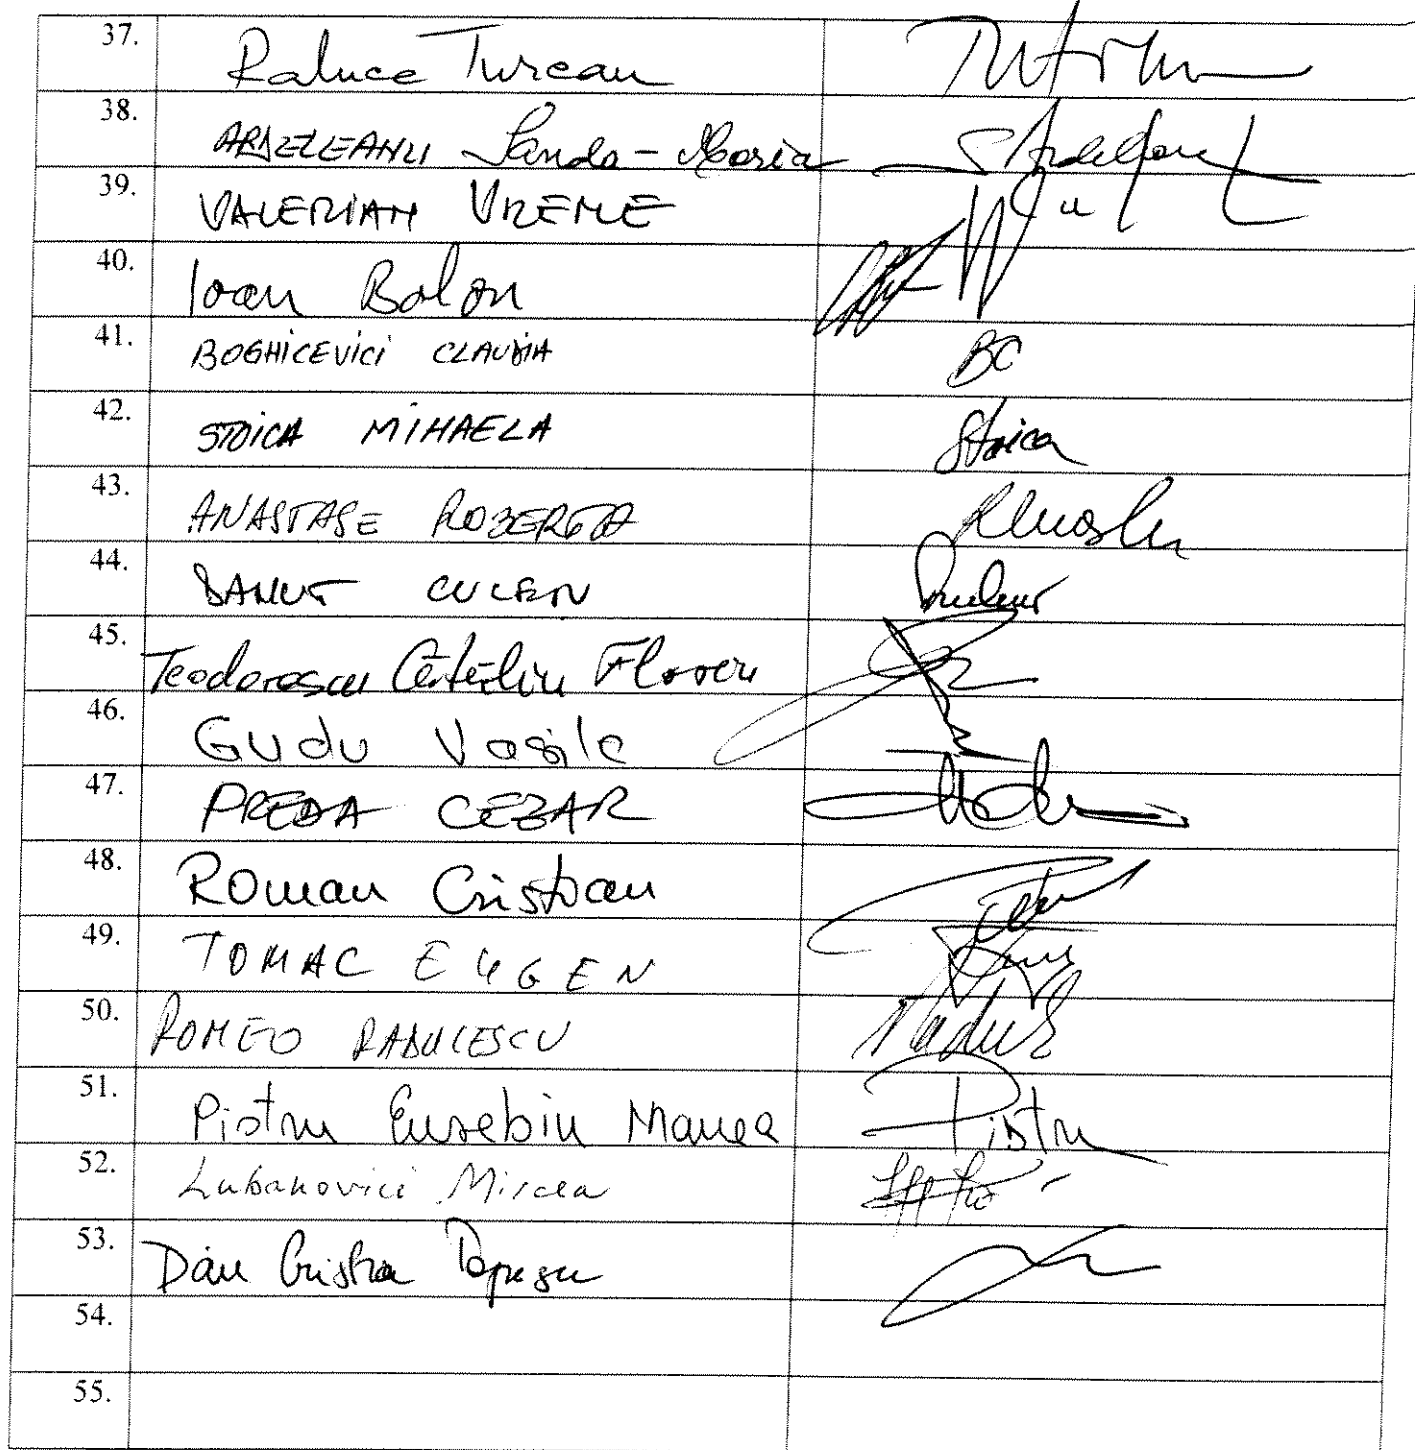 37. Raluca Turcan
38. ARDELEANU Sanda-Maria SArdelean
39. VALERIAN VREME
40. Ioan Balan
41. BOGHICEVICI CLAUDIA BC
42. STOICA MIHAELA Stoica
43. ANASTASE ROBERTA
44. DANUT CULETU
45. Teodorescu Cătălin Florin
46. Gudu Vasile
47. PREDA CEZAR
48. Roman Cristian
49. TOMAC EUGEN
50. ROMEO RADULESCU
51. Pistru Eusebiu Manea Pistru
52. Lubanovici Mircea
53. Dan Cristian Popescu
54.
55.